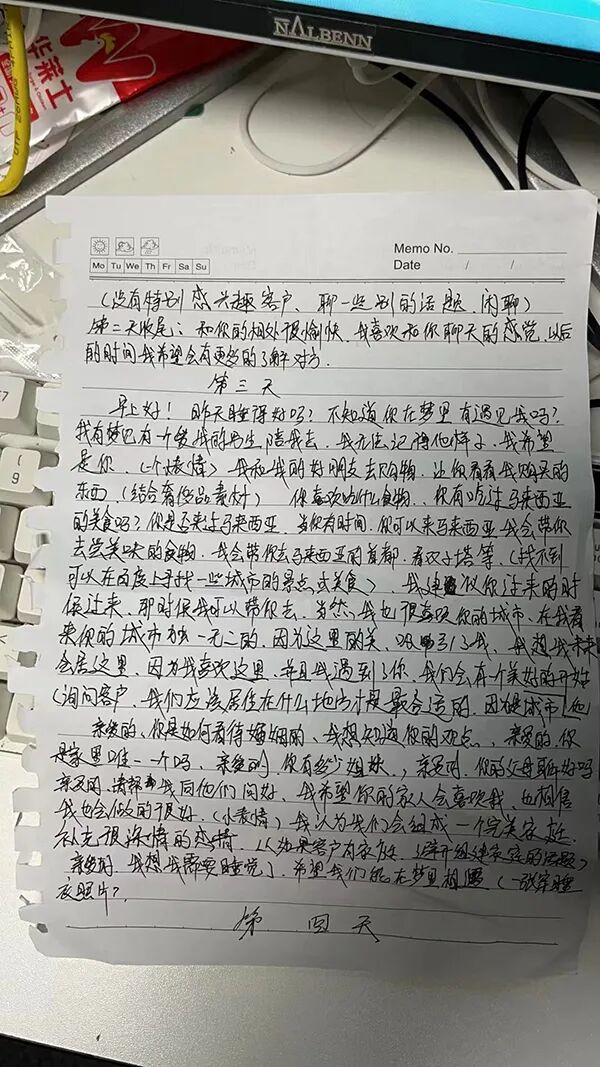 NALBENN
华莱士
UTP
F7
(
9
Memo No.
Mo Tu We Th Fr Sa Su
Date / /
(没有特别感兴趣客户、聊一些别的话题.闲聊)
第二天收尾:和你的相处很愉快.我喜欢和你聊天的感觉.以后
的时间我希望会有更多的了解对方.
第三天
早上好!昨天睡得好吗?不知道你在梦里有遇见我吗?
我有梦见有一个类似的男生陪我去.我无法记得他样子.我希望
是你.(一个表情)我和我的好朋友去购物.让你看看我购买的
东西(结合奢侈品素材) 你喜欢吃什么食物.你有吃过马来西亚
的美食吗?你是否来过马来西亚.当你有时间.你可以来马来西亚我会带你
去尝美味的食物.我会带你去马来西亚的首都.看双子塔等.(找不到
可以在百度上寻找一些城市的景点或美食).我建议你过来的时
候过来.那时候我可以带你去.当然.我也很喜欢你的城市.在我看
来你的城市独一无二的.因为这里的美.吸引了我.我想我未来
会居这里.因为我喜欢这里.并且我遇到了你.我们会有一个美好的开始
(询问客户.我们应该居住在什么地方才是最合适的.因为是城市
亲爱的.你是如何看待婚姻的.我想知道你的观点.亲爱的.你
是家里唯一一个吗.亲爱的.你有多少姐妹.亲爱的.你的父母都好吗
亲爱的.请帮我同他们问好.我希望你的家人会喜欢我.也相信
我也会做的很好.(小表情)我认为我们会组成一个完美家庭.
补充很深情的感情.以如果客户有家庭.避开组建家庭的话题)
亲爱的.我想我需要睡觉了.希望我们能在梦里相遇(一张穿睡
衣照片?
第四天